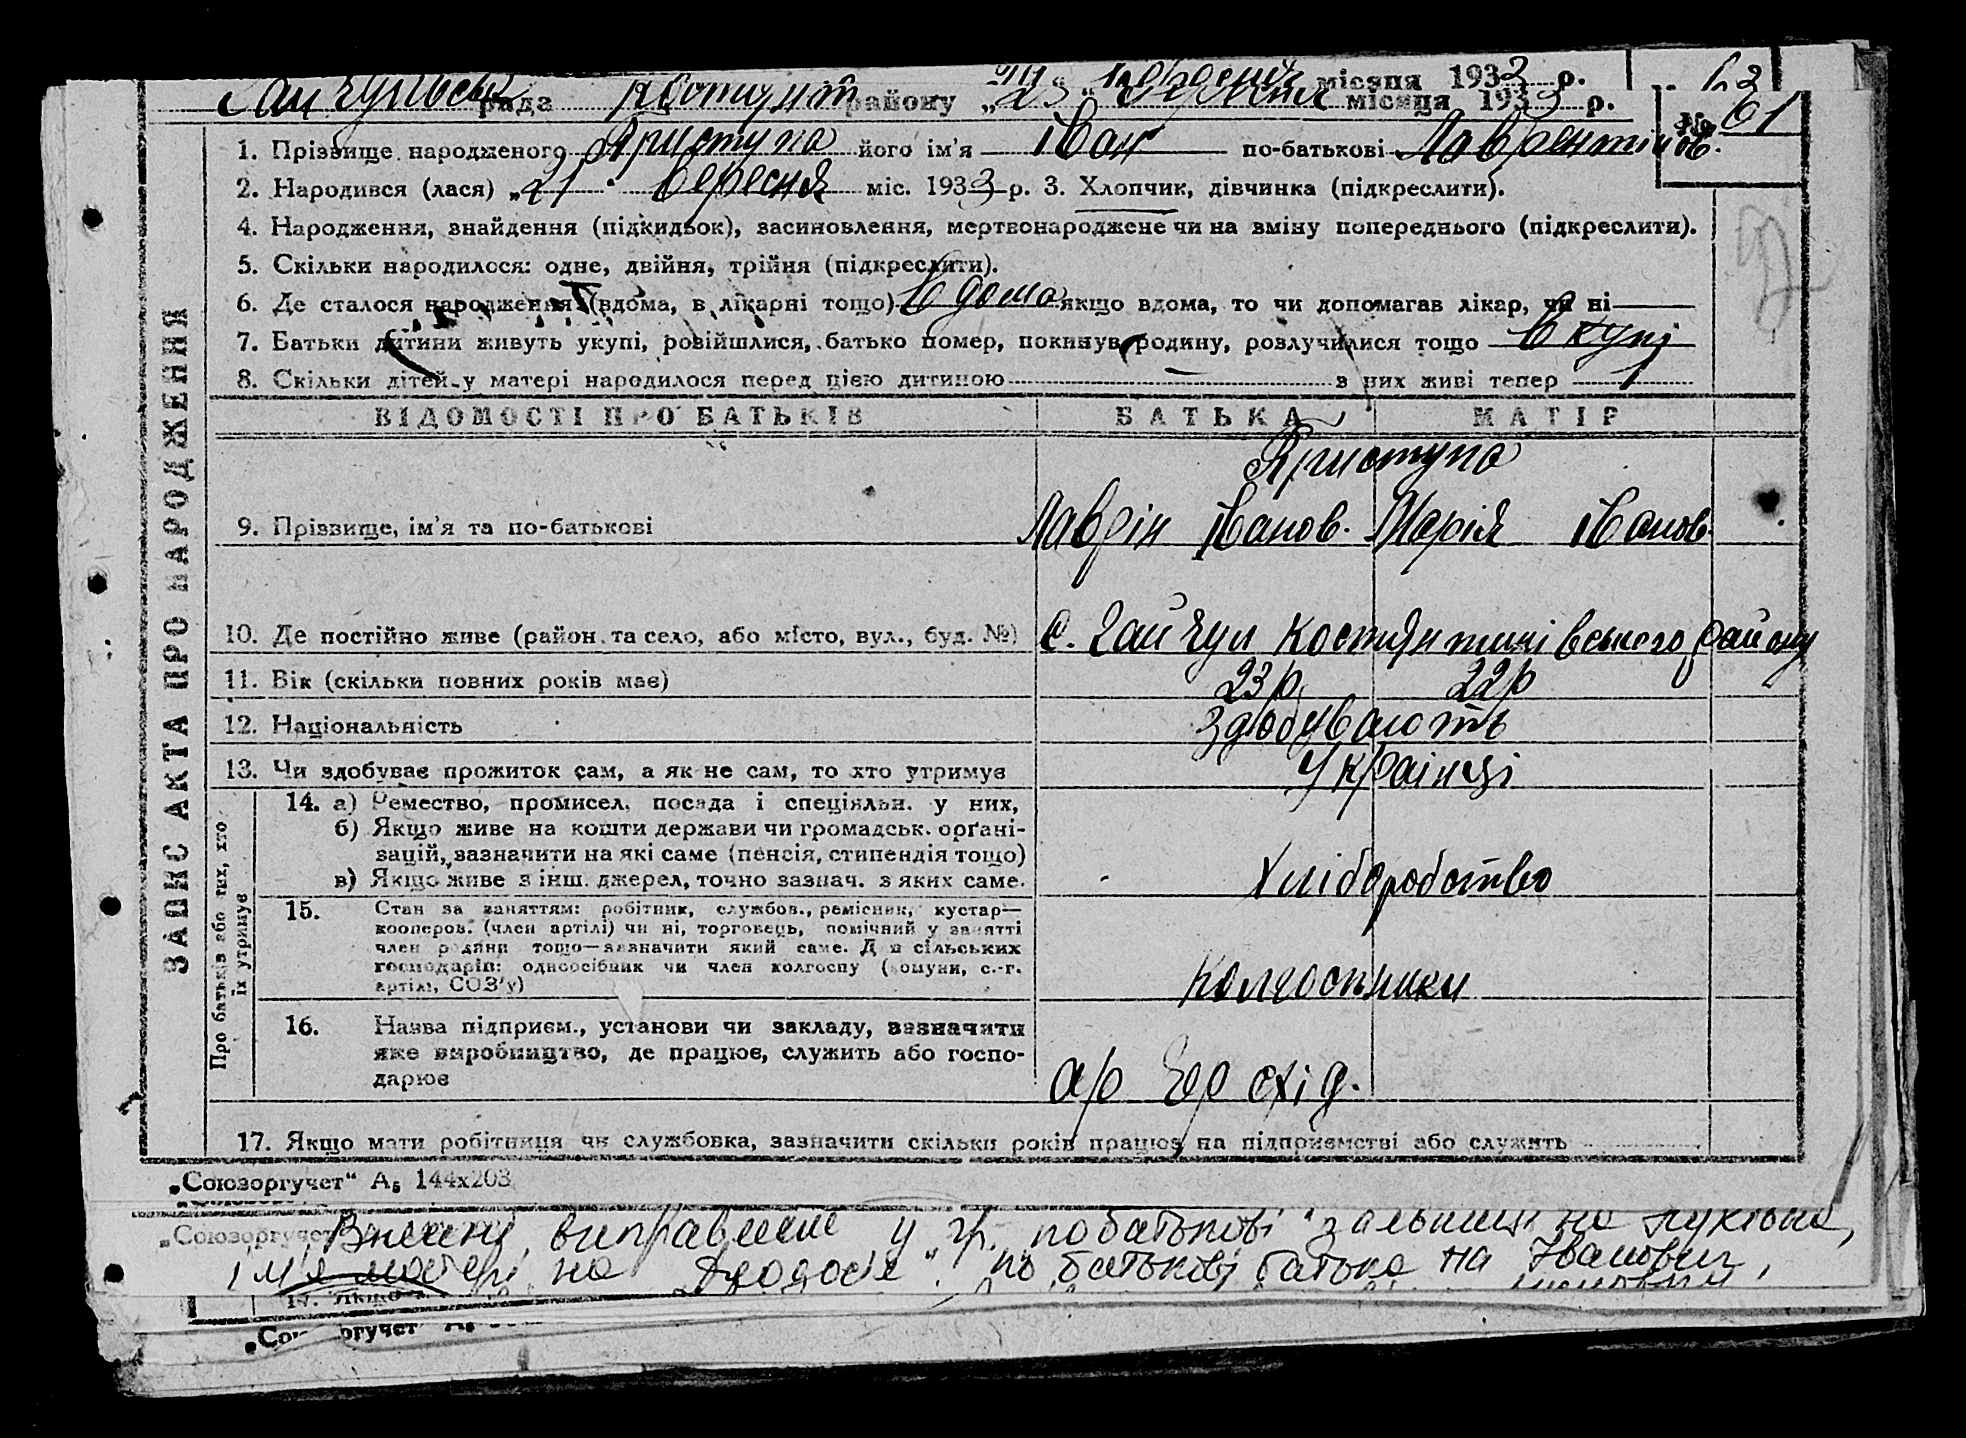 місяця 1933 р. 63
Гайчульська рада района „23“ вересня місяця 1933 р. № 61
1. Прізвище народженого Приступа його ім'я Іван по-батькові Лаврентійов.
2. Народився (лася) „21“ вересня міс. 1933 р. 3. Хлопчик, дівчинка (підкреслити).
4. Народження, знайдення (підкидьок), засиновлення, мертвонароджене чи на зміну попереднього (підкреслити).
5. Скільки народилося: одне, двійня, трійня (підкреслити).
6. Де сталося народження (вдома, в лікарні тощо) Вдома якщо вдома, то чи допомагав лікар, чи ні
7. Батьки дитини живуть укупі, розійшлися, батько помер, покинув родину, розлучилися тощо Вкупі
8. Скільки дітей у матері народилося перед цією дитиною — з них живі тепер 1
ВІДОМОСТІ ПРО БАТЬКІВ БАТЬКА МАТІР
Приступа
9. Прізвище, ім'я та по-батькові Лаврін Іванов. Марія Іванов.
10. Де постійно живе (район та село, або місто, вул., буд. №) с. Гайчул Костянтинівського району
11. Вік (скільки повних років має) 23 р 22 р
12. Національність Здобувають
13. Чи здобуває прожиток сам, а як не сам, то хто утримує Українці
14. а) Ремество, промисел, посада і спеціяльн. у них,
б) Якщо живе на кошти держави чи громадськ. орґані-
зацій, зазначити на які саме (пенсія, стипендія тощо)
в) Якщо живе з інш. джерел, точно зазнач. з яких саме. Хліборобство
15. Стан за заняттям: робітник, службов., ремісник, кустар—
кооперов. (член артілі) чи ні, торговець, помічний у занятті
член родини тощо—зазначити який саме. Для сільських
господарів: одноосібник чи член колгоспу (комуни, с.-г.
артілі, СОЗ'у) Колгоспники
16. Назва підприєм., установи чи закладу, зазначити
яке виробництво, де працює, служить або госпо-
дарює а/р схід.
17. Якщо мати робітниця чи службовка, зазначити скільки років працює на підприємстві або служить
ЗАПИС АКТА ПРО НАРОДЖЕННЯ
Про батьків або тих, хто
їх утримує
„Союзоргучет“ А5 144х203
„Союзоргучет
виправлення у гр. побатькові на
ім'я матері на по батькові батька на Іванович,
17. Якщо
„Союзоргучет